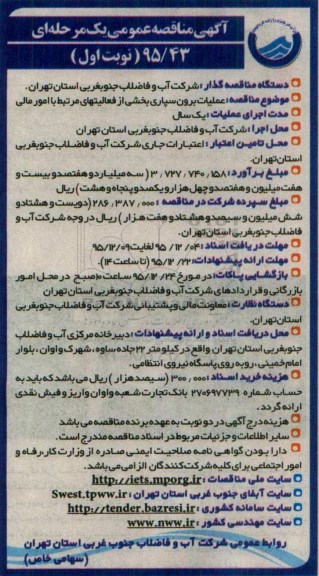 آگهی مناقصه عمومی یک مرحله‌ای
۹۵/۴۳ (نوبت اول)
دستگاه مناقصه گذار: شرکت آب و فاضلاب جنوبغربی استان تهران.
موضوع مناقصه: عملیات برون سپاری بخشی از فعالیتهای مرتبط با امور مالی
مدت اجرای عملیات: یک سال
محل اجرا: شرکت آب و فاضلاب جنوبغربی استان تهران
محل تامین اعتبار: اعتبارات جاری شرکت آب و فاضلاب جنوبغربی
استان تهران.
مبلغ برآورد: ۳/۷۲۷/۷۴۰/۱۵۸ (سه میلیارد و هفتصدو بیست و
هفت میلیون و هفتصدو چهل هزار و یکصدو پنجاه و هشت) ریال
مبلغ سپرده شرکت در مناقصه: ۲۸۶/۳۸۷/۰۰۰ (دویست و هشتاد و
شش میلیون و سیصدو هشتاد و هفت هزار) ریال در وجه شرکت آب و
فاضلاب جنوبغربی استان تهران.
مهلت دریافت اسناد: ۹۵/۱۲/۰۳ لغایت ۹۵/۱۲/۰۹
مهلت ارائه پیشنهادات: ۹۵/۱۲/۲۲ (تا ساعت ۱۴)
بازگشایی پاکات: در مورخ ۹۵/۱۲/۲۴ ساعت ۱۰ صبح در محل امور
بازرگانی و قراردادهای شرکت آب و فاضلاب جنوبغربی استان تهران
دستگاه نظارت: معاونت مالی و پشتیبانی شرکت آب و فاضلاب جنوبغربی
استان تهران.
محل دریافت اسناد و ارائه پیشنهادات: دبیرخانه مرکزی آب و فاضلاب
جنوبغربی استان تهران واقع در کیلومتر ۲۲ جاده ساوه، شهرک واوان، بلوار
امام خمینی، روبه روی پاسگاه نیروی انتظامی.
هزینه خرید اسناد: ۳۰۰/۰۰۰ (سیصد هزار) ریال می باشد که باید به
حساب شماره ۲۷۰۶۹۷۷۳۹ بانک تجارت شعبه واوان واریز و فیش نقدی
ارائه گردد.
هزینه درج آگهی در دو نوبت به عهده برنده مناقصه می باشد
سایر اطلاعات و جزئیات مربوط در اسناد مناقصه مندرج است.
دارا بودن گواهی نامه صلاحیت ایمنی صادره از وزارت کار، رفاه و
امور اجتماعی برای کلیه شرکت کنندگان الزامی می باشد.
سایت ملی مناقصات: http://iets.mporg.ir
سایت آبفای جنوب غربی استان تهران: Swest.tpww.ir
سایت سامانه کشوری: http://tender.bazresi.ir
سایت مهندسی کشور: www.nww.ir
روابط عمومی شرکت آب و فاضلاب جنوب غربی استان تهران
(سهامی خاص)